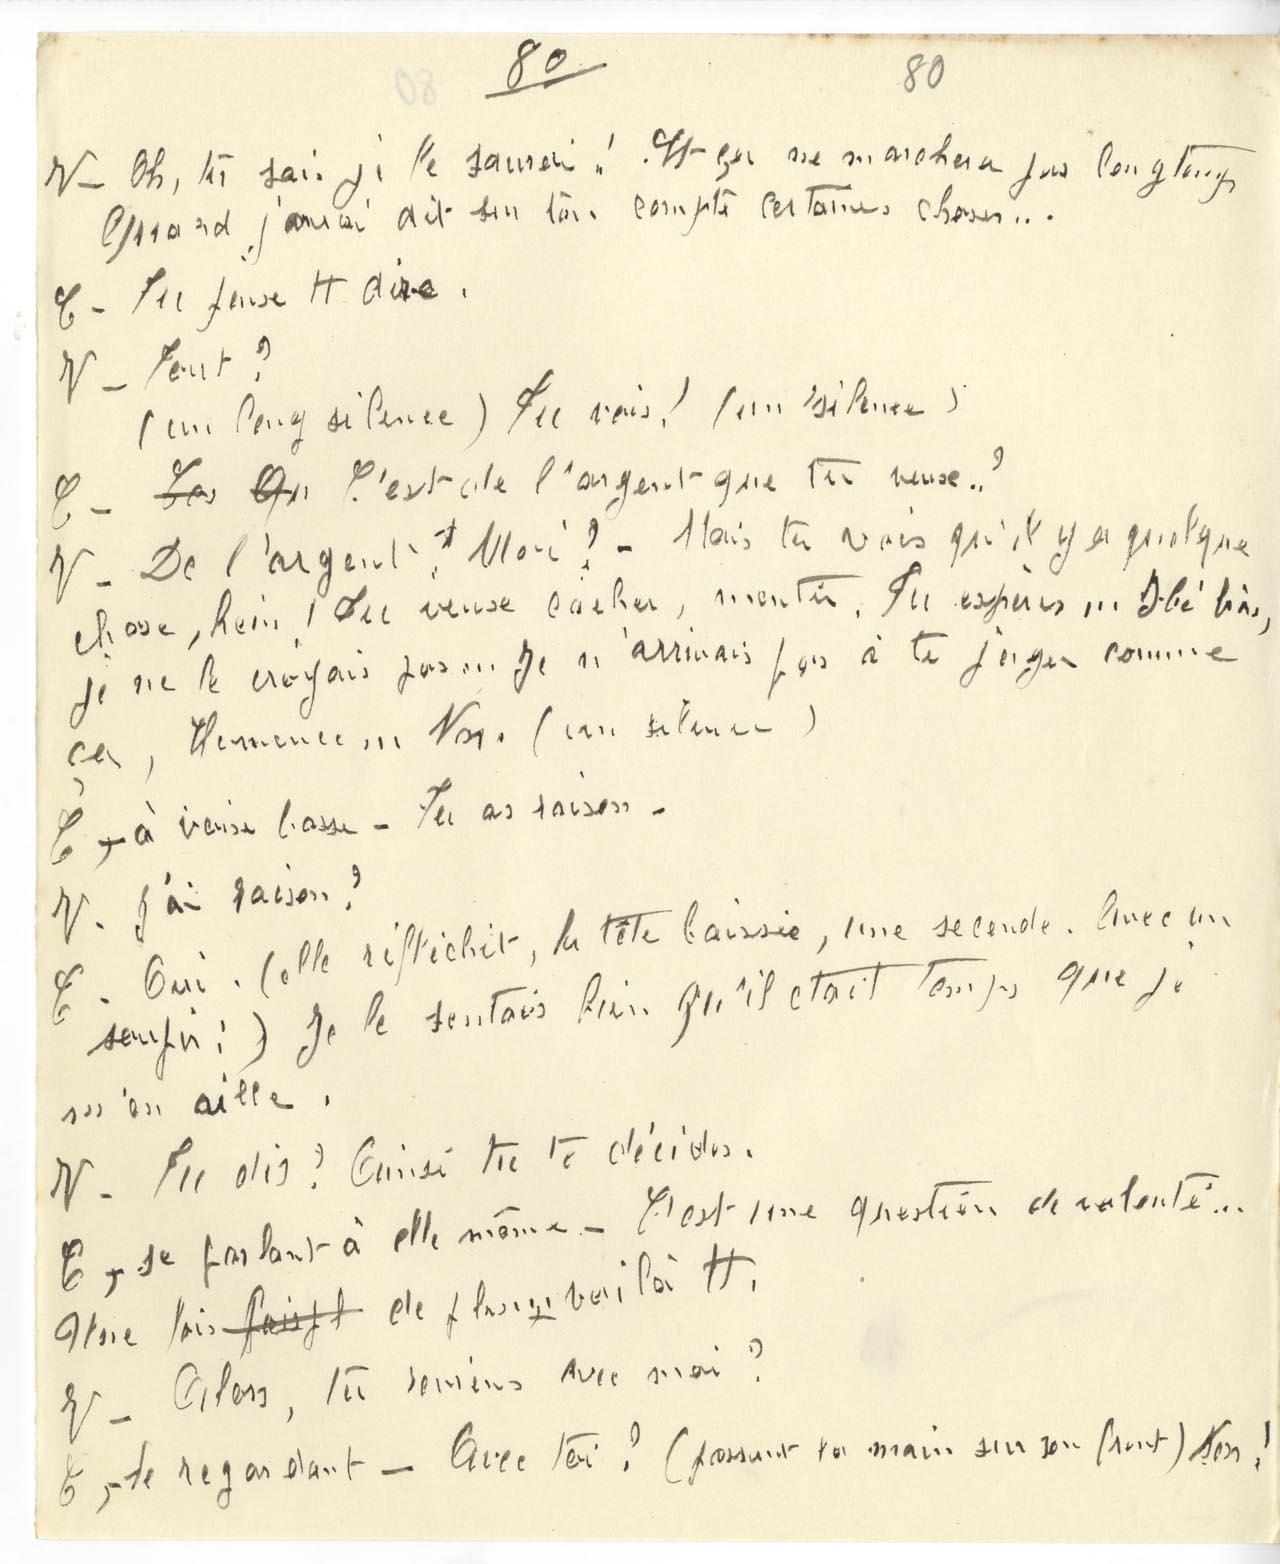 80 80
N – Oh, tu sais je le saurai ! Et ça ne marchera pas longtemps
Quand j'aurai dit sur ton compte certaines choses...
C – Tu peux tt dire.
N – Tout ?
(un long silence) Tu vois ! (un silence)
C – C'est de l'argent que tu veux..?
N – De l'argent ? Moi ? – Mais tu vois qu'il y a quelque
chose, hein ! Tu veux cacher, mentir. Tu espères ... Eh bien,
je ne le croyais pas ... Je n'arrivais pas à te juger comme
ça, ... Non. (un silence)
C, à voix basse – Tu as raison –
N. J'ai raison ?
C. Oui. (elle réfléchit, la tête baissée, une seconde. Avec un
soupir :) Je le sentais bien qu'il était temps que je
m'en aille.
N – Tu dis ? Ainsi tu te décides.
C, se parlant à elle même – C'est une question de volonté...
Une fois de plus ... voilà tt.
N – Alors, tu reviens avec moi ?
C, le regardant – Avec toi ? (passant la main sur son front) Non !